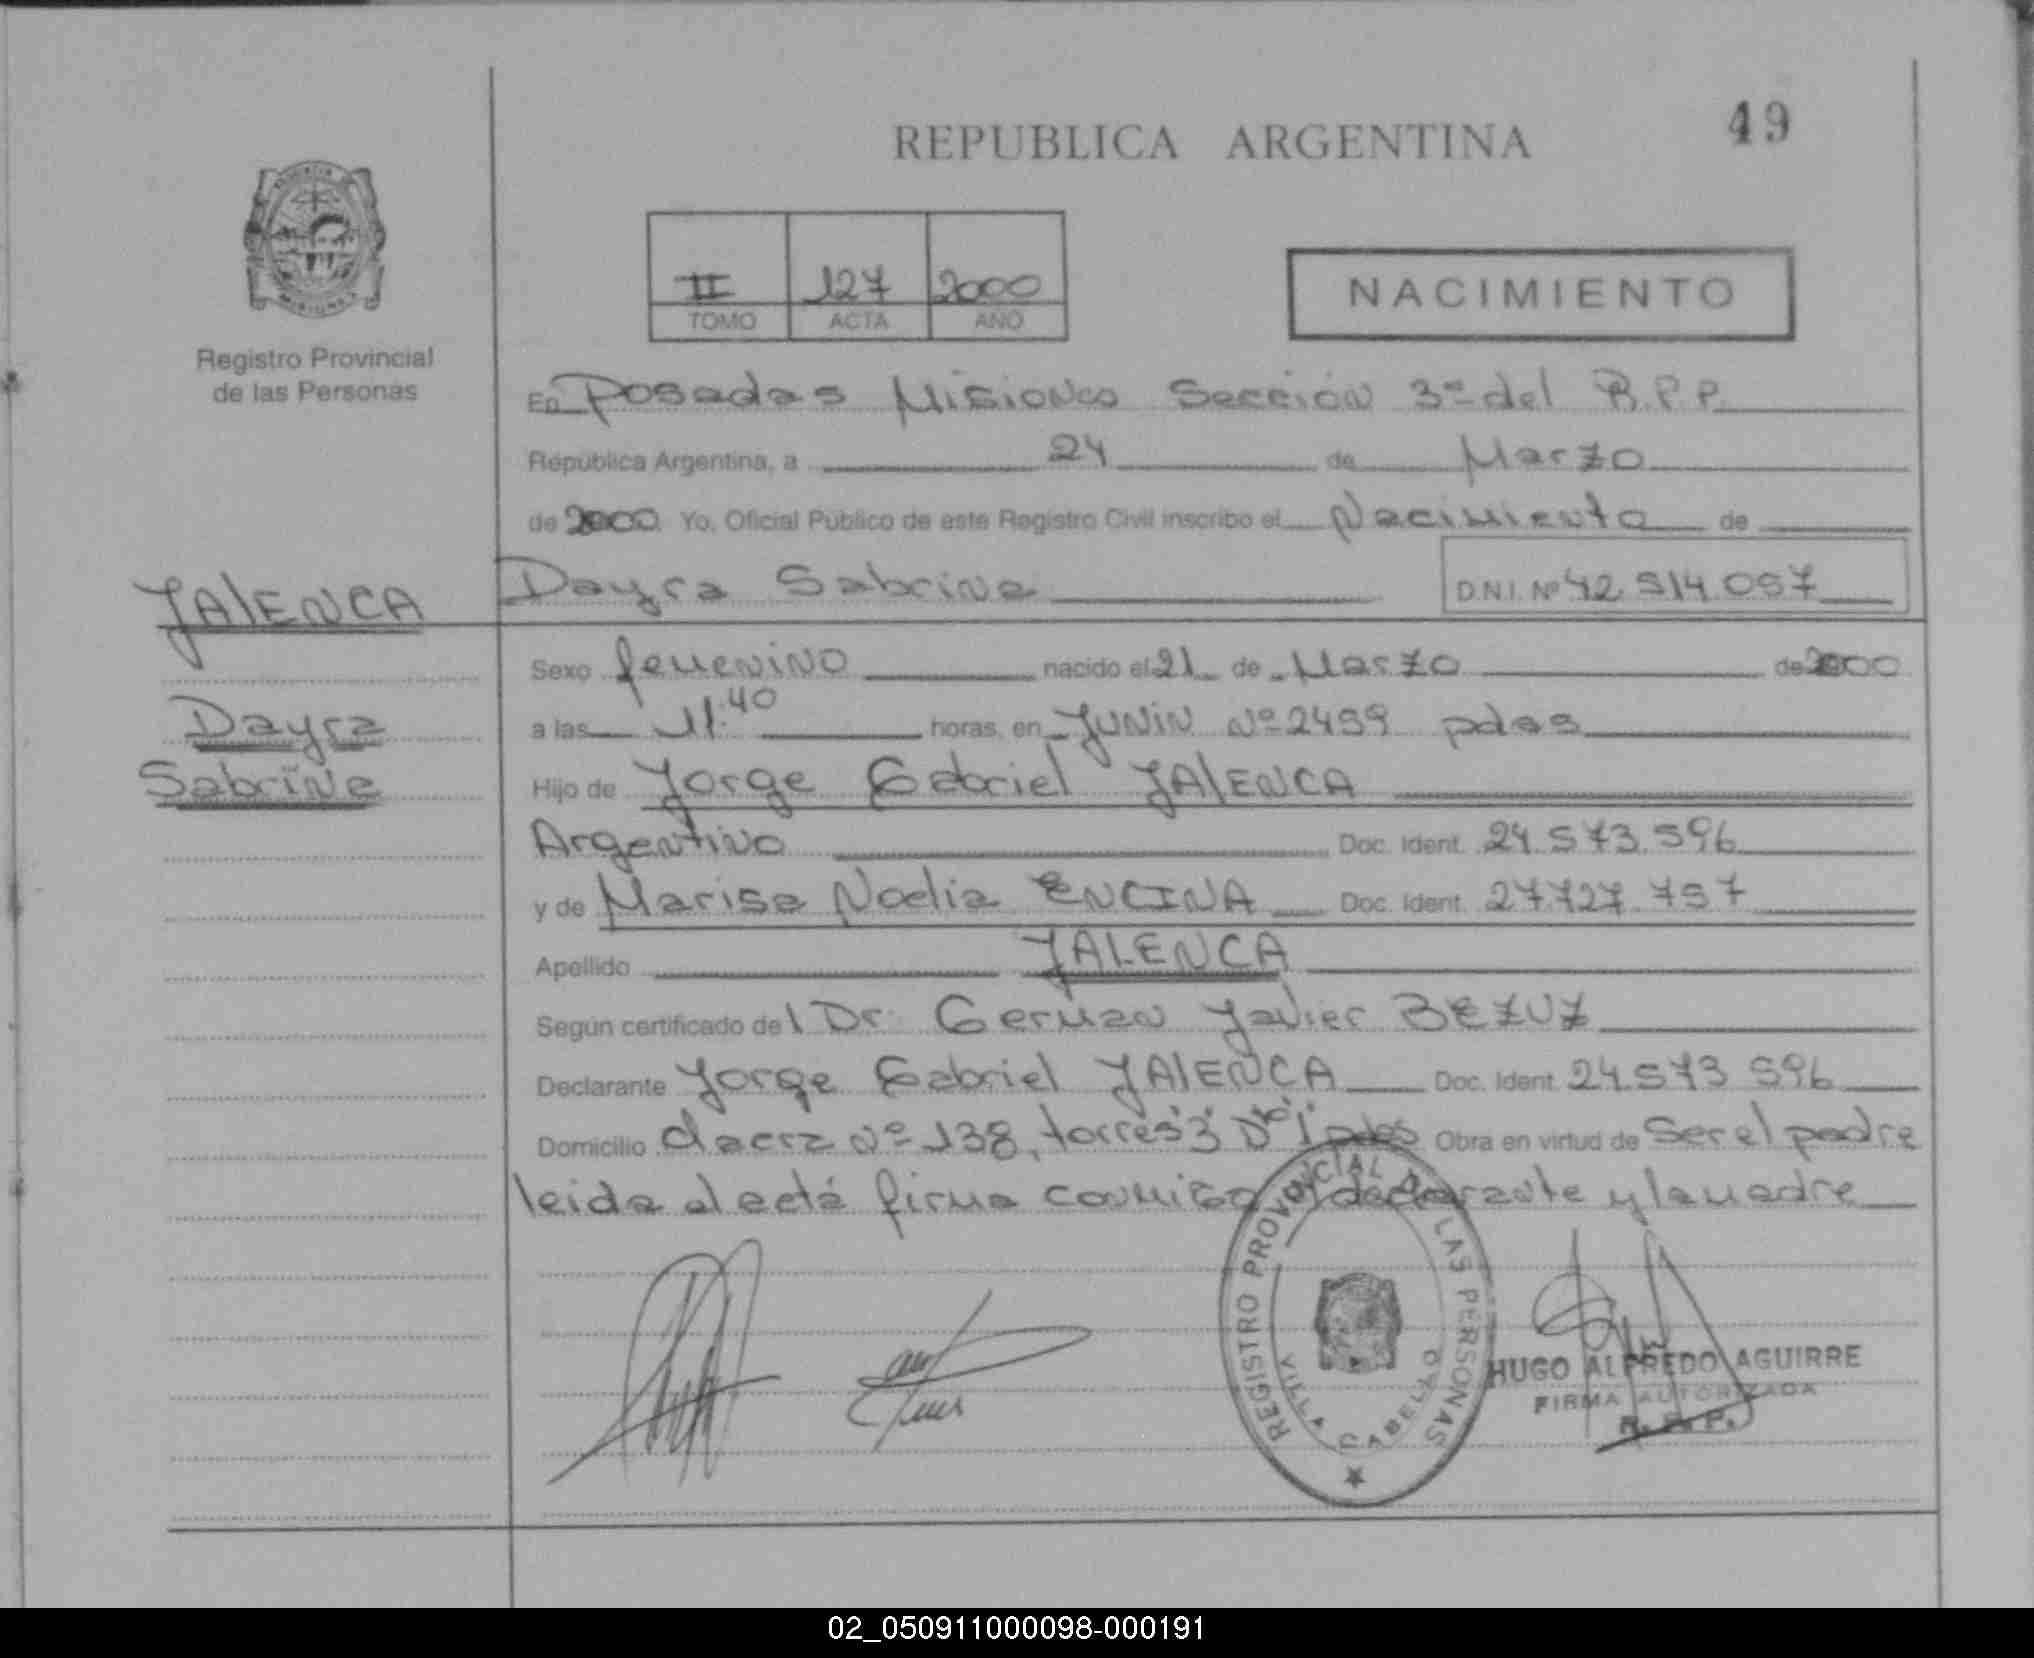 49
REPUBLICA ARGENTINA
II 127 2000
TOMO ACTA AÑO
NACIMIENTO
Registro Provincial
de las Personas
En Posadas Misiones Sección 3ª del R.P.P.
República Argentina, a 24 de Marzo
de 2000. Yo, Oficial Público de este Registro Civil inscribo el Nacimiento de
JALENCA
Dayra
Sabrina
Dayra Sabrina D.N.I. Nº 42.514.057
Sexo femenino nacido el 21 de Marzo de 2000
a las 11:40 horas, en Junin Nº 2459 pdas
Hijo de Jorge Gabriel JALENCA
Argentino Doc. Ident. 24.573.596
y de Marisa Noelia ENCINA Doc. Ident. 27.727.757
Apellido JALENCA
Según certificado del Dr. German Javier BEZUZ
Declarante Jorge Gabriel JALENCA Doc. Ident. 24.573 596
Domicilio chacra Nº 138, torres 3 Dto 1 pdas Obra en virtud de Ser el padre
leida el acta firma conmigo declarante y la madre
REGISTRO PROVINCIAL DE LAS PERSONAS
VILLA CABELLO
HUGO ALFREDO AGUIRRE
FIRMA AUTORIZADA
R. P. P.
02_050911000098-000191